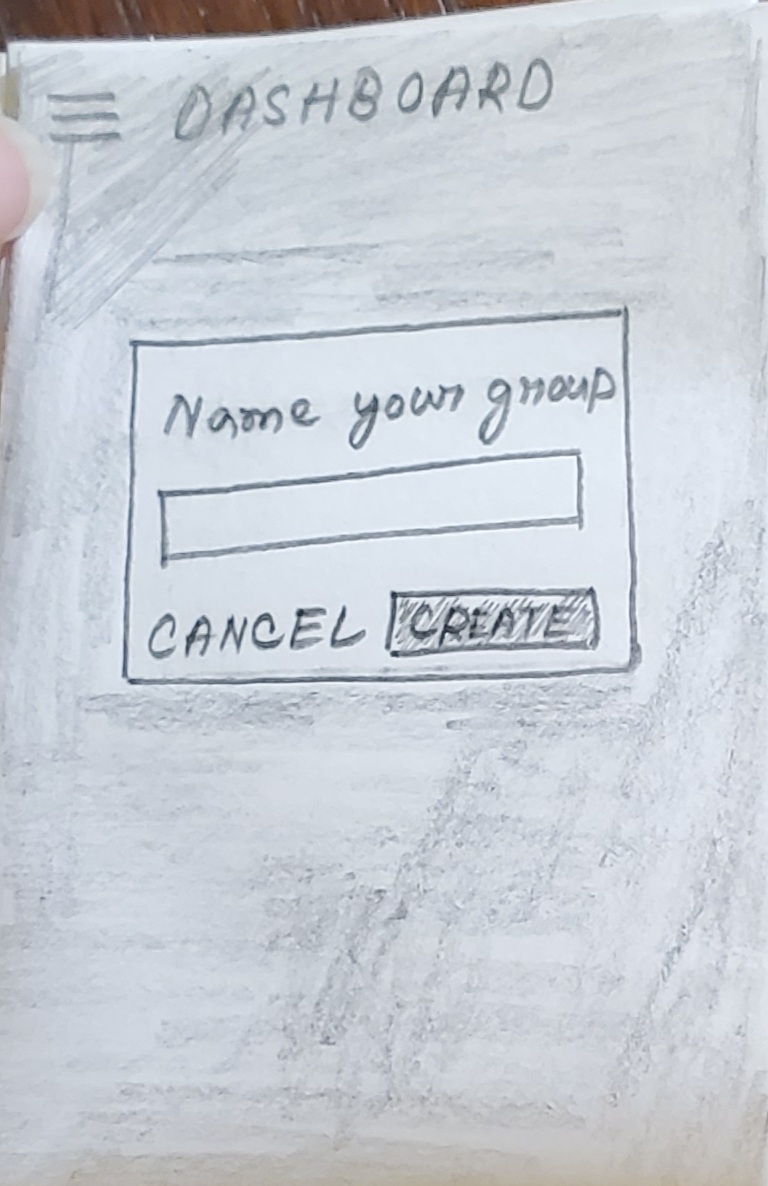 DASHBOARD
Name your group
CANCEL CREATE